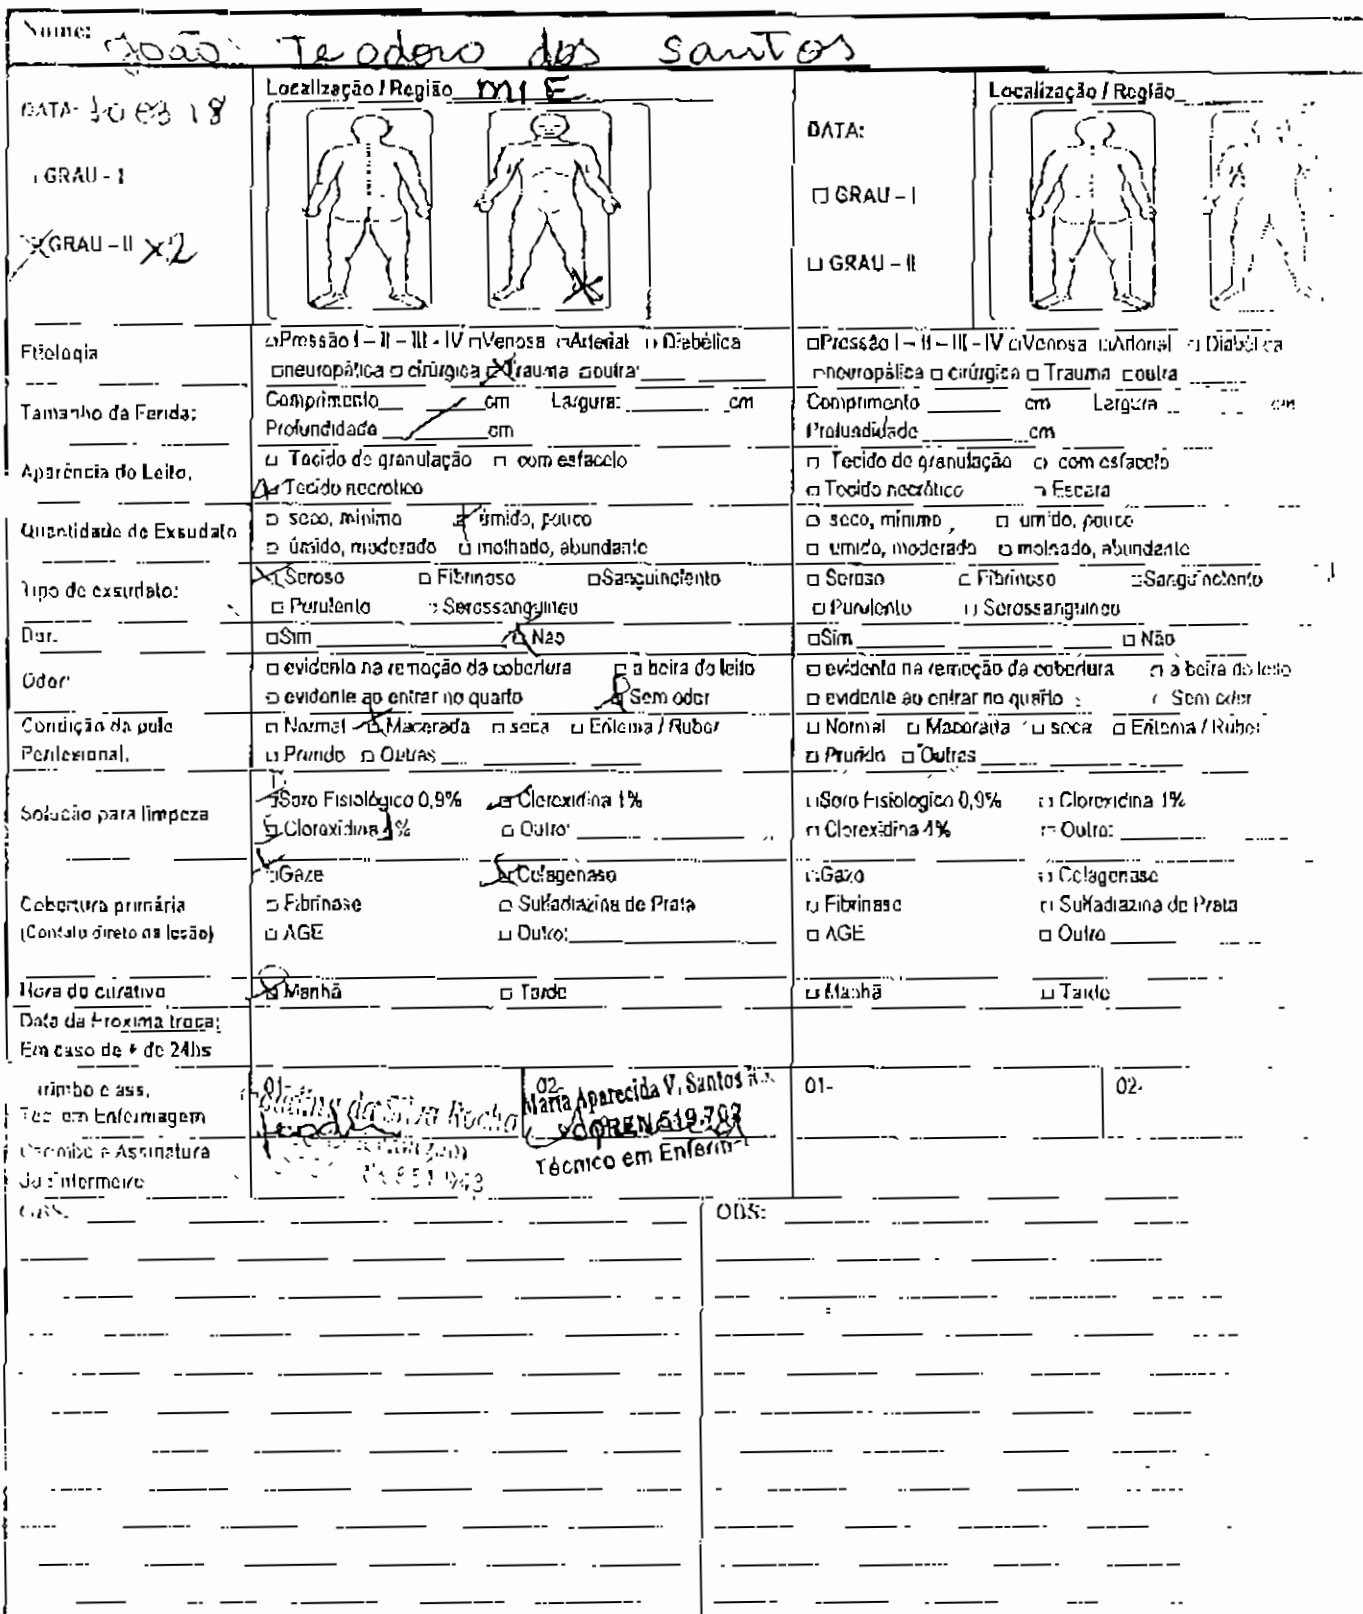 Nome: João Teodoro dos Santos
DATA: 30 03 18
Localização / Região MIE
DATA:
Localização / Região
GRAU - I
GRAU - II X2
□ GRAU - I
□ GRAU - II
Etiologia
□Pressão I - II - III - IV □Venosa □Arterial □ Diabética
□neuropática □ cirúrgica □Trauma □outra:
□Pressão I - II - III - IV □Venosa □Arterial □ Diabética
□neuropática □ cirúrgica □ Trauma □outra
Tamanho da Ferida:
Comprimento ____ cm Largura: ____ cm
Profundidade ____ cm
Comprimento ____ cm Largura ____ cm
Profundidade ____ cm
Aparência do Leito.
□ Tecido de granulação □ com esfacelo
□ Tecido necrótico
□ Tecido de granulação □ com esfacelo
□ Tecido necrótico □ Escara
Quantidade de Exsudato
□ seco, mínimo □ úmido, pouco
□ úmido, moderado □ molhado, abundante
□ seco, mínimo □ úmido, pouco
□ úmido, moderado □ molhado, abundante
Tipo de exsudato:
□ Seroso □ Fibrinoso □Sanguinolento
□ Purulento □ Serossanguineo
□ Seroso □ Fibrinoso □Sanguinolento
□ Purulento □ Serossanguineo
Dor.
□Sim ____ □ Não
□Sim ____ □ Não
Odor:
□ evidente na remoção da cobertura □ a beira do leito
□ evidente ao entrar no quarto □ Sem odor
□ evidente na remoção da cobertura □ a beira do leito
□ evidente ao entrar no quarto □ Sem odor
Condição da pele
Perilesional.
□ Normal □ Macerada □ seca □ Eritema / Rubor
□ Prurido □ Outras
□ Normal □ Macerada □ seca □ Eritema / Rubor
□ Prurido □ Outras
Solução para limpeza
□Soro Fisiológico 0,9% □ Clorexidina 1%
□ Clorexidina 1% □ Outro:
□Soro Fisiologico 0,9% □ Clorexidina 1%
□ Clorexidina 4% □ Outro:
Cobertura primária
(Contato direto na lesão)
□Gaze □ Colagenase
□ Fibrinase □ Sulfadiazina de Prata
□ AGE □ Outro:
□Gaze □ Colagenase
□ Fibrinase □ Sulfadiazina de Prata
□ AGE □ Outro
Hora do curativo
□ Manhã □ Tarde
□ Manhã □ Tarde
Data da Próxima troca:
Em caso de + de 24hs
Carimbo e ass.
Tec em Enfermagem
01- da Silva Rocha
02- Maria Aparecida V. Santos
COREN 519.703
Técnico em Enferm
01-
02-
Carimbo e Assinatura
do Enfermeiro
OBS:
OBS: